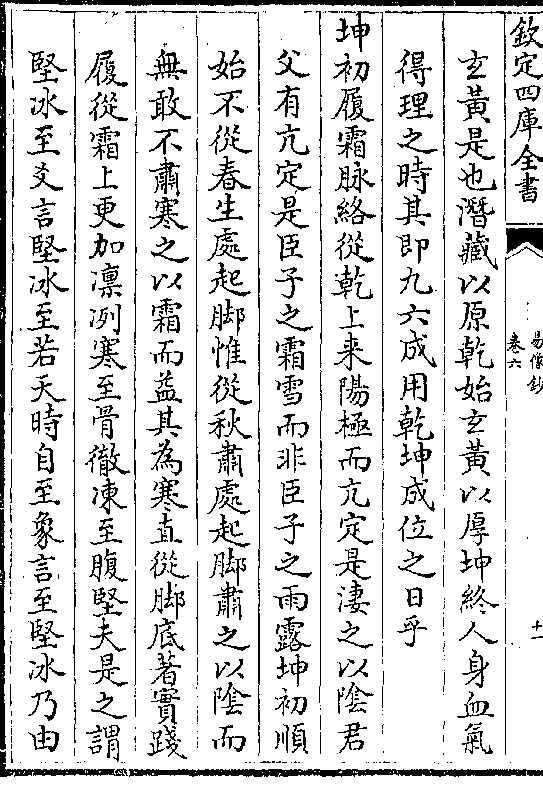 欽定四庫全書
易像鈔
卷六
十一
玄黃是也潛藏以原乾始玄黃以厚坤終人身血氣
得理之時其即九六成用乾坤成位之日乎
坤初履霜脉絡從乾上来陽極而亢定是淒之以陰君
父有亢定是臣子之霜雪而非臣子之雨露坤初順
始不從春生處起脚惟從秋肅處起脚肅之以陰而
無敢不肅寒之以霜而益其為寒直從脚底著實踐
履從霜上更加凛冽寒至骨徹凍至腹堅夫是之謂
堅冰至爻言堅冰至若天時自至象言至堅冰乃由